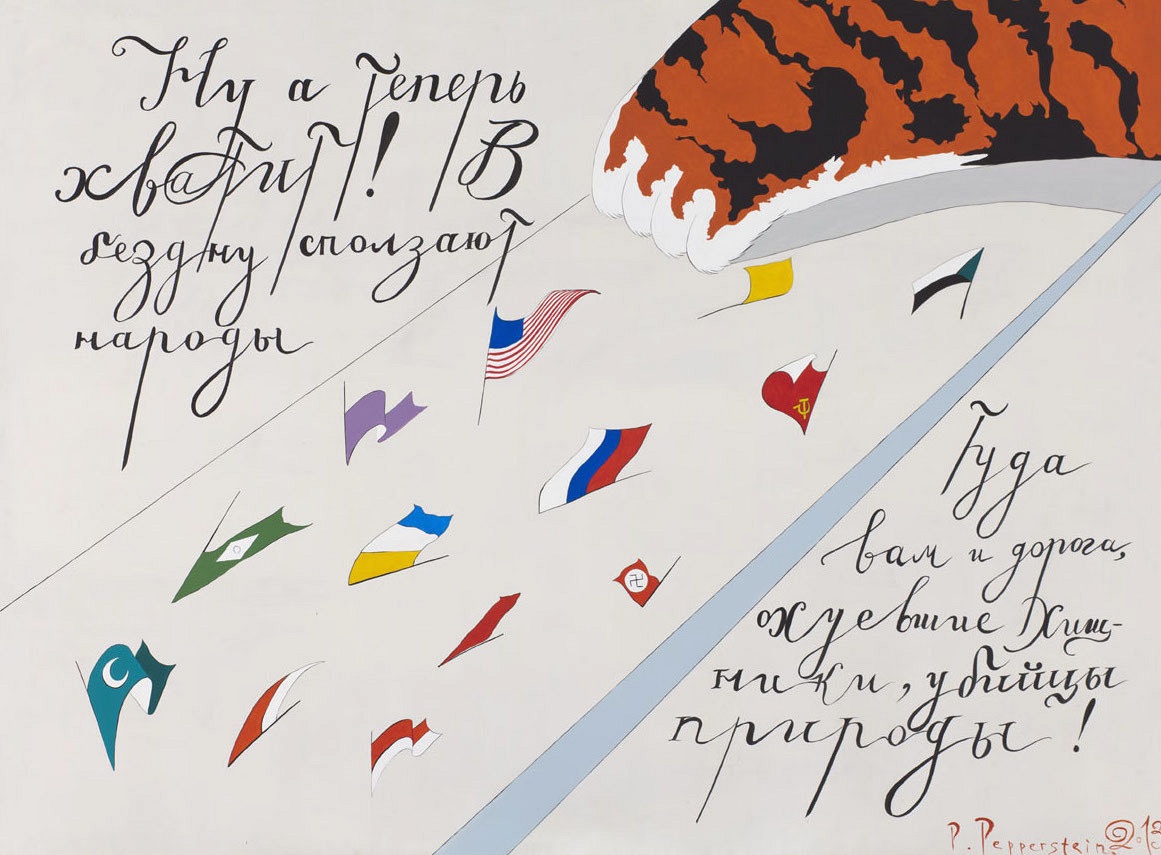 Ну а теперь
хватит! В
бездну сползают
народы
Туда
вам и дорога,
охуевшие хищ-
ники, убийцы
природы!
P. Pepperstein